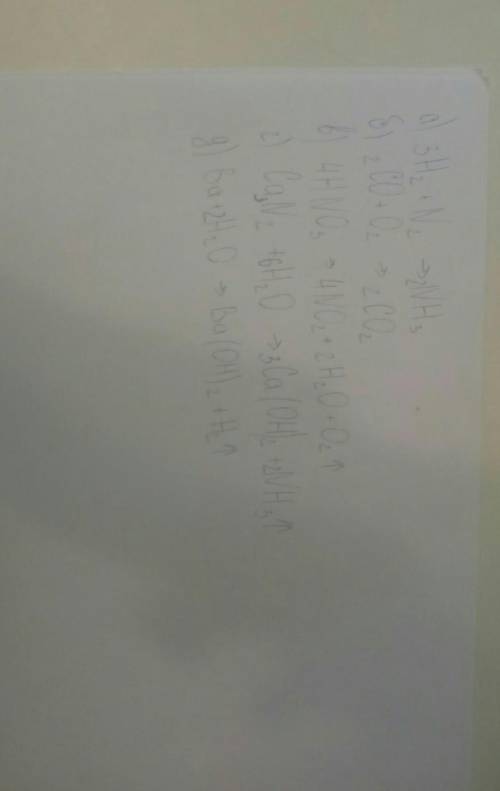 а) 3H₂ + N₂ → 2NH₃
б) 2CO + O₂ → 2CO₂
в) 4HNO₃ → 4NO₂ + 2H₂O + O₂↑
г) Ca₃N₂ + 6H₂O → 3Ca(OH)₂ + 2NH₃↑
д) Ba + 2H₂O → Ba(OH)₂ + H₂↑